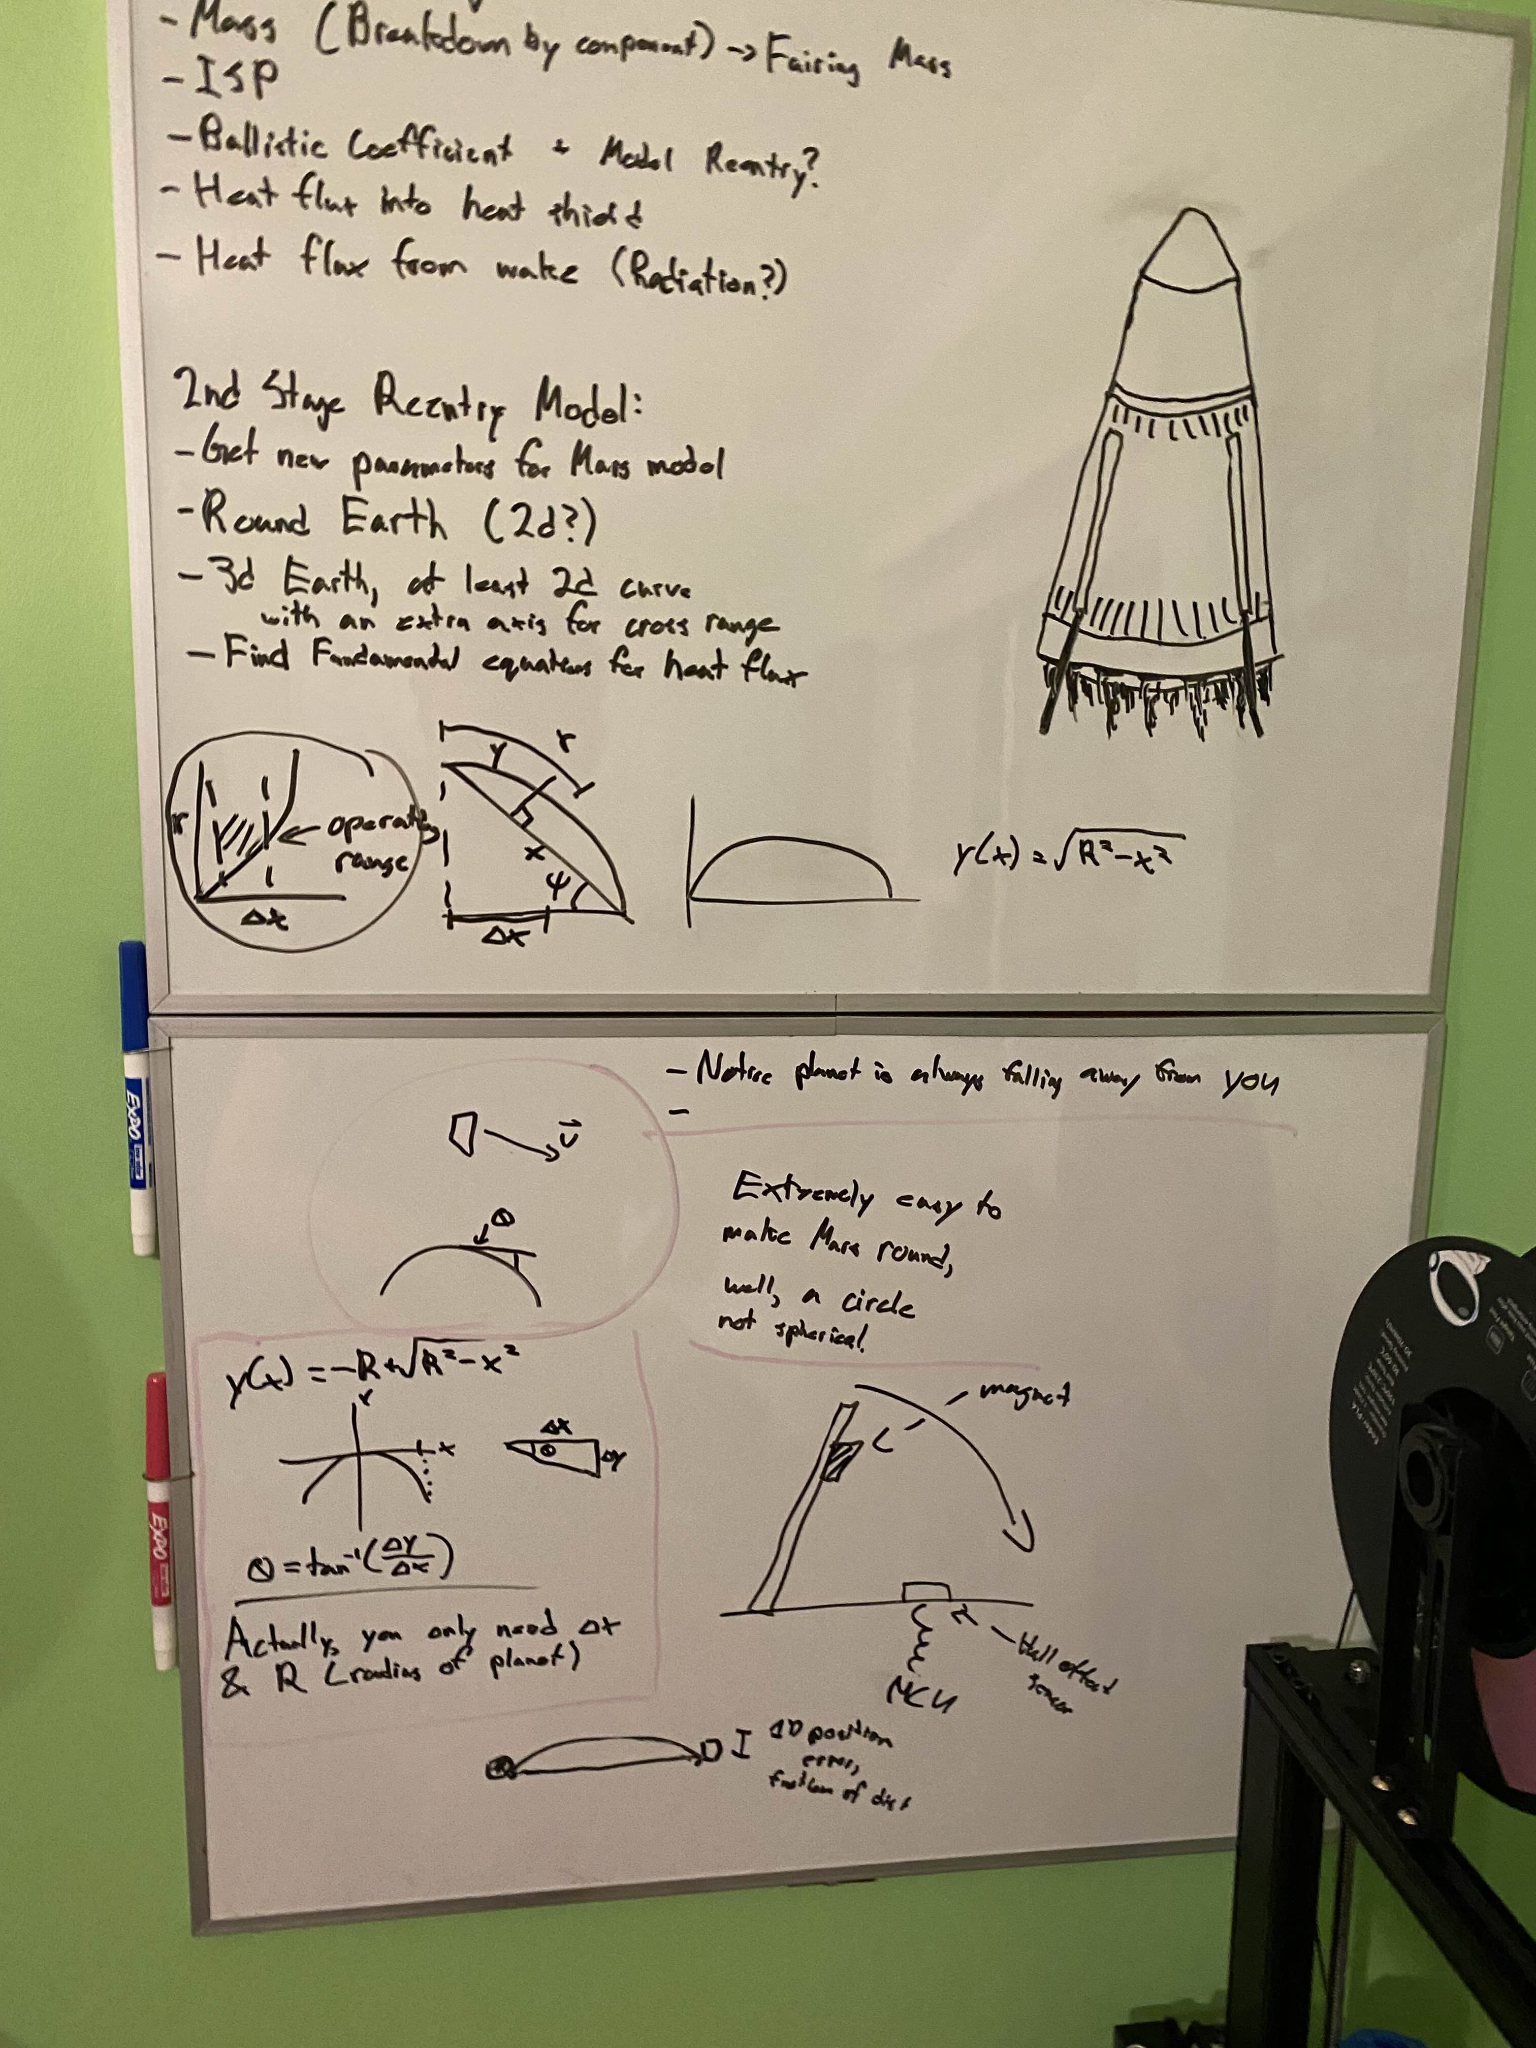 - Mass (Breakdown by component) -> Fairing Mass
- ISP
- Ballistic Coefficient + Model Reentry?
- Heat flux into heat shield
- Heat flux from wake (Radiation?)
2nd Stage Reentry Model:
- Get new parameters for Mars model
- Round Earth (2d?)
- 3d Earth, at least 2d curve
with an extra axis for cross range
- Find Fundamental equations for heat flux
r
operating
range
Δx
r
y
x
ψ
Δx
y(x) = √R²-x²
- Notice planet is always falling away from you
-
v
θ
Extremely easy to
make Mars round,
well, a circle
not spherical.
y(x) = -R+√R²-x²
Y
x
Δx
θ
Δy
θ = tan⁻¹(Δy/Δx)
Actually, you only need Δx
& R (radius of planet)
magnet
Hall effect
sensor
MCU
1D position
error,
function of dist
EXPO
EXPO